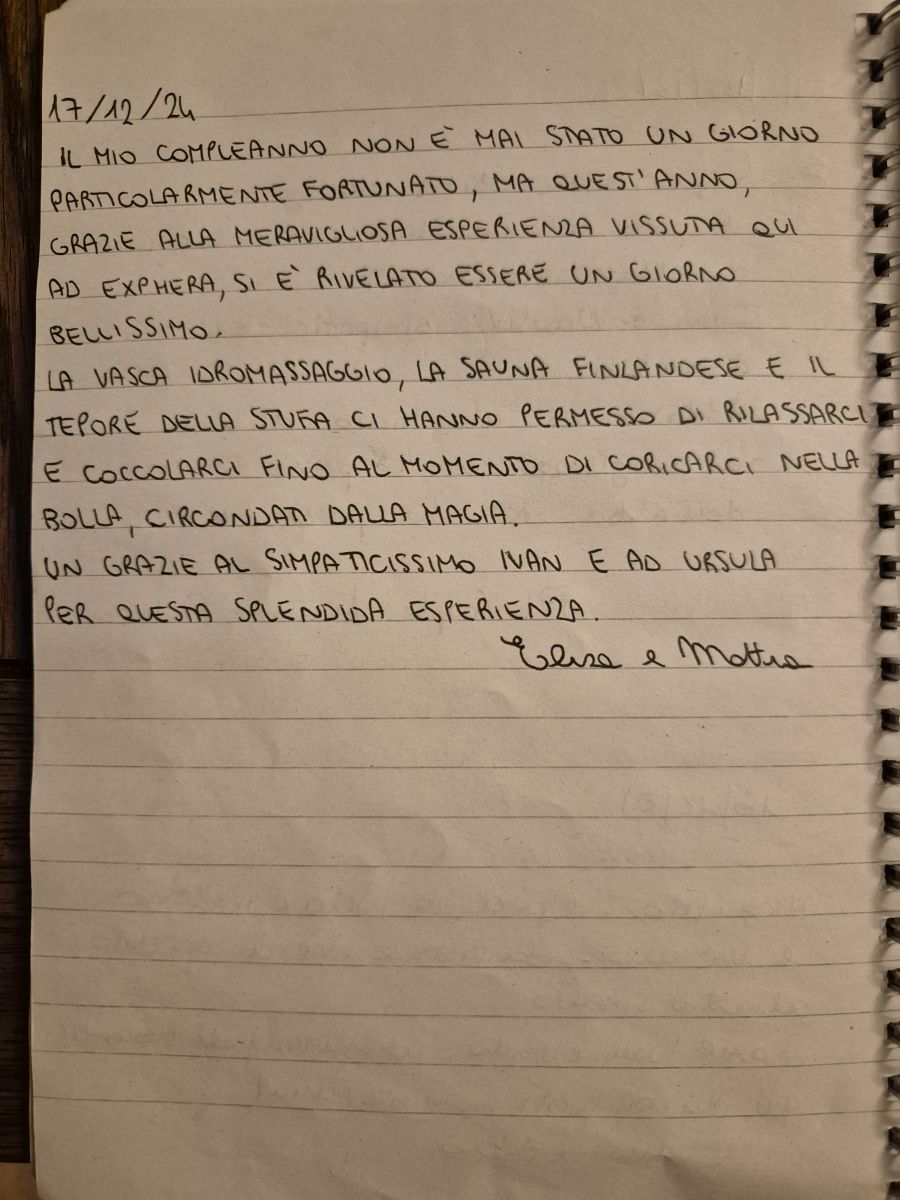 17/12/24
IL MIO COMPLEANNO NON È MAI STATO UN GIORNO
PARTICOLARMENTE FORTUNATO, MA QUEST'ANNO,
GRAZIE ALLA MERAVIGLIOSA ESPERIENZA VISSUTA QUI
AD EXPHERA, SI È RIVELATO ESSERE UN GIORNO
BELLISSIMO.
LA VASCA IDROMASSAGGIO, LA SAUNA FINLANDESE E IL
TEPORE DELLA STUFA CI HANNO PERMESSO DI RILASSARCI
E COCCOLARCI FINO AL MOMENTO DI CORICARCI NELLA
BOLLA, CIRCONDATI DALLA MAGIA.
UN GRAZIE AL SIMPATICISSIMO IVAN E AD URSULA
PER QUESTA SPLENDIDA ESPERIENZA.
Elisa e Mattia